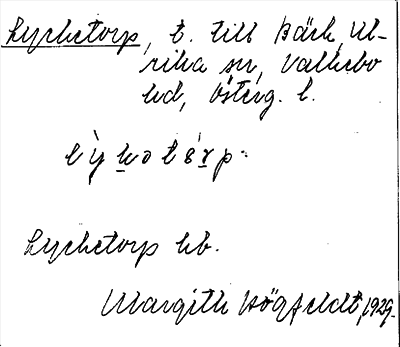 Lycketorp, t. till Bäck, Ul-
rika sn, Valkebo
hd, Österg. l.
Lycketorp kb.
Margith Högfeldt, 1929.